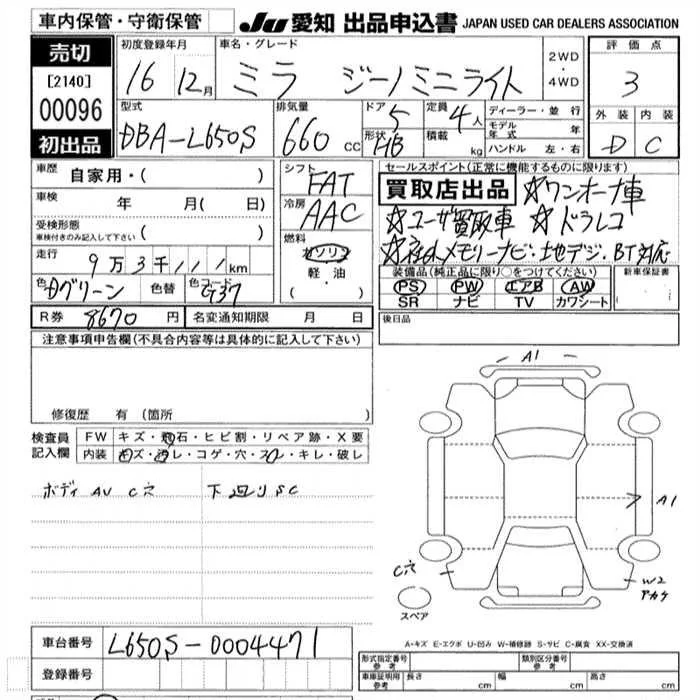 車内保管・守衛保管
JU 愛知 出品申込書 JAPAN USED CAR DEALERS ASSOCIATION
売切
[2140]
00096
初出品
初度登録年月
16 12月
車名・グレード
ミラ ジーノミニライト
2WD・4WD
評価点
3
外装 内装
D C
型式
DBA-L650S
排気量
660 cc
ドア 5
形状 HB
定員 4人
積載 kg
ディーラー・並行
モデル年式 年
ハンドル 左・右
車歴 自家用・( )
車検 年 月( 日)
受検形態
車検付きのみ記入して下さい ( )
走行 9万3千111km
色 Dグリーン 色替 色コード G37
R券 8670 円 名変通知期限 月 日
シフト FAT
冷房 AAC
燃料
ガソリン
軽油
( ・ )
セールスポイント(正常に機能するものに限ります)
買取店出品 ☆ワンオーナ車
☆ユーザ買取車 ☆ドラレコ
☆社外メモリーナビ・地デジ・BT対応
装備品(純正品に限り○をつけてください)
PS PW エアB AW
SR ナビ TV カワシート
新車保証書
後日品
注意事項申告欄(不具合内容等は具体的に記入して下さい)
修復歴 有 (箇所 )
検査員記入欄
FW キズ・飛石・ヒビ割・リペア跡・X要
内装 キズ・汚レ・コゲ・穴・スレ・キレ・破レ
ボディ AU C穴 下回りSC
A1
A1
C穴
スペア
W2
アカケ
A-キズ E-エクボ U-凹み W-補修跡 S-サビ C-腐食 XX-交換済
車台番号 L650S-0004471
登録番号
形式指定番号 参考
類別区分番号 参考
車庫証明用 参考 長さ cm 幅 cm 高さ cm